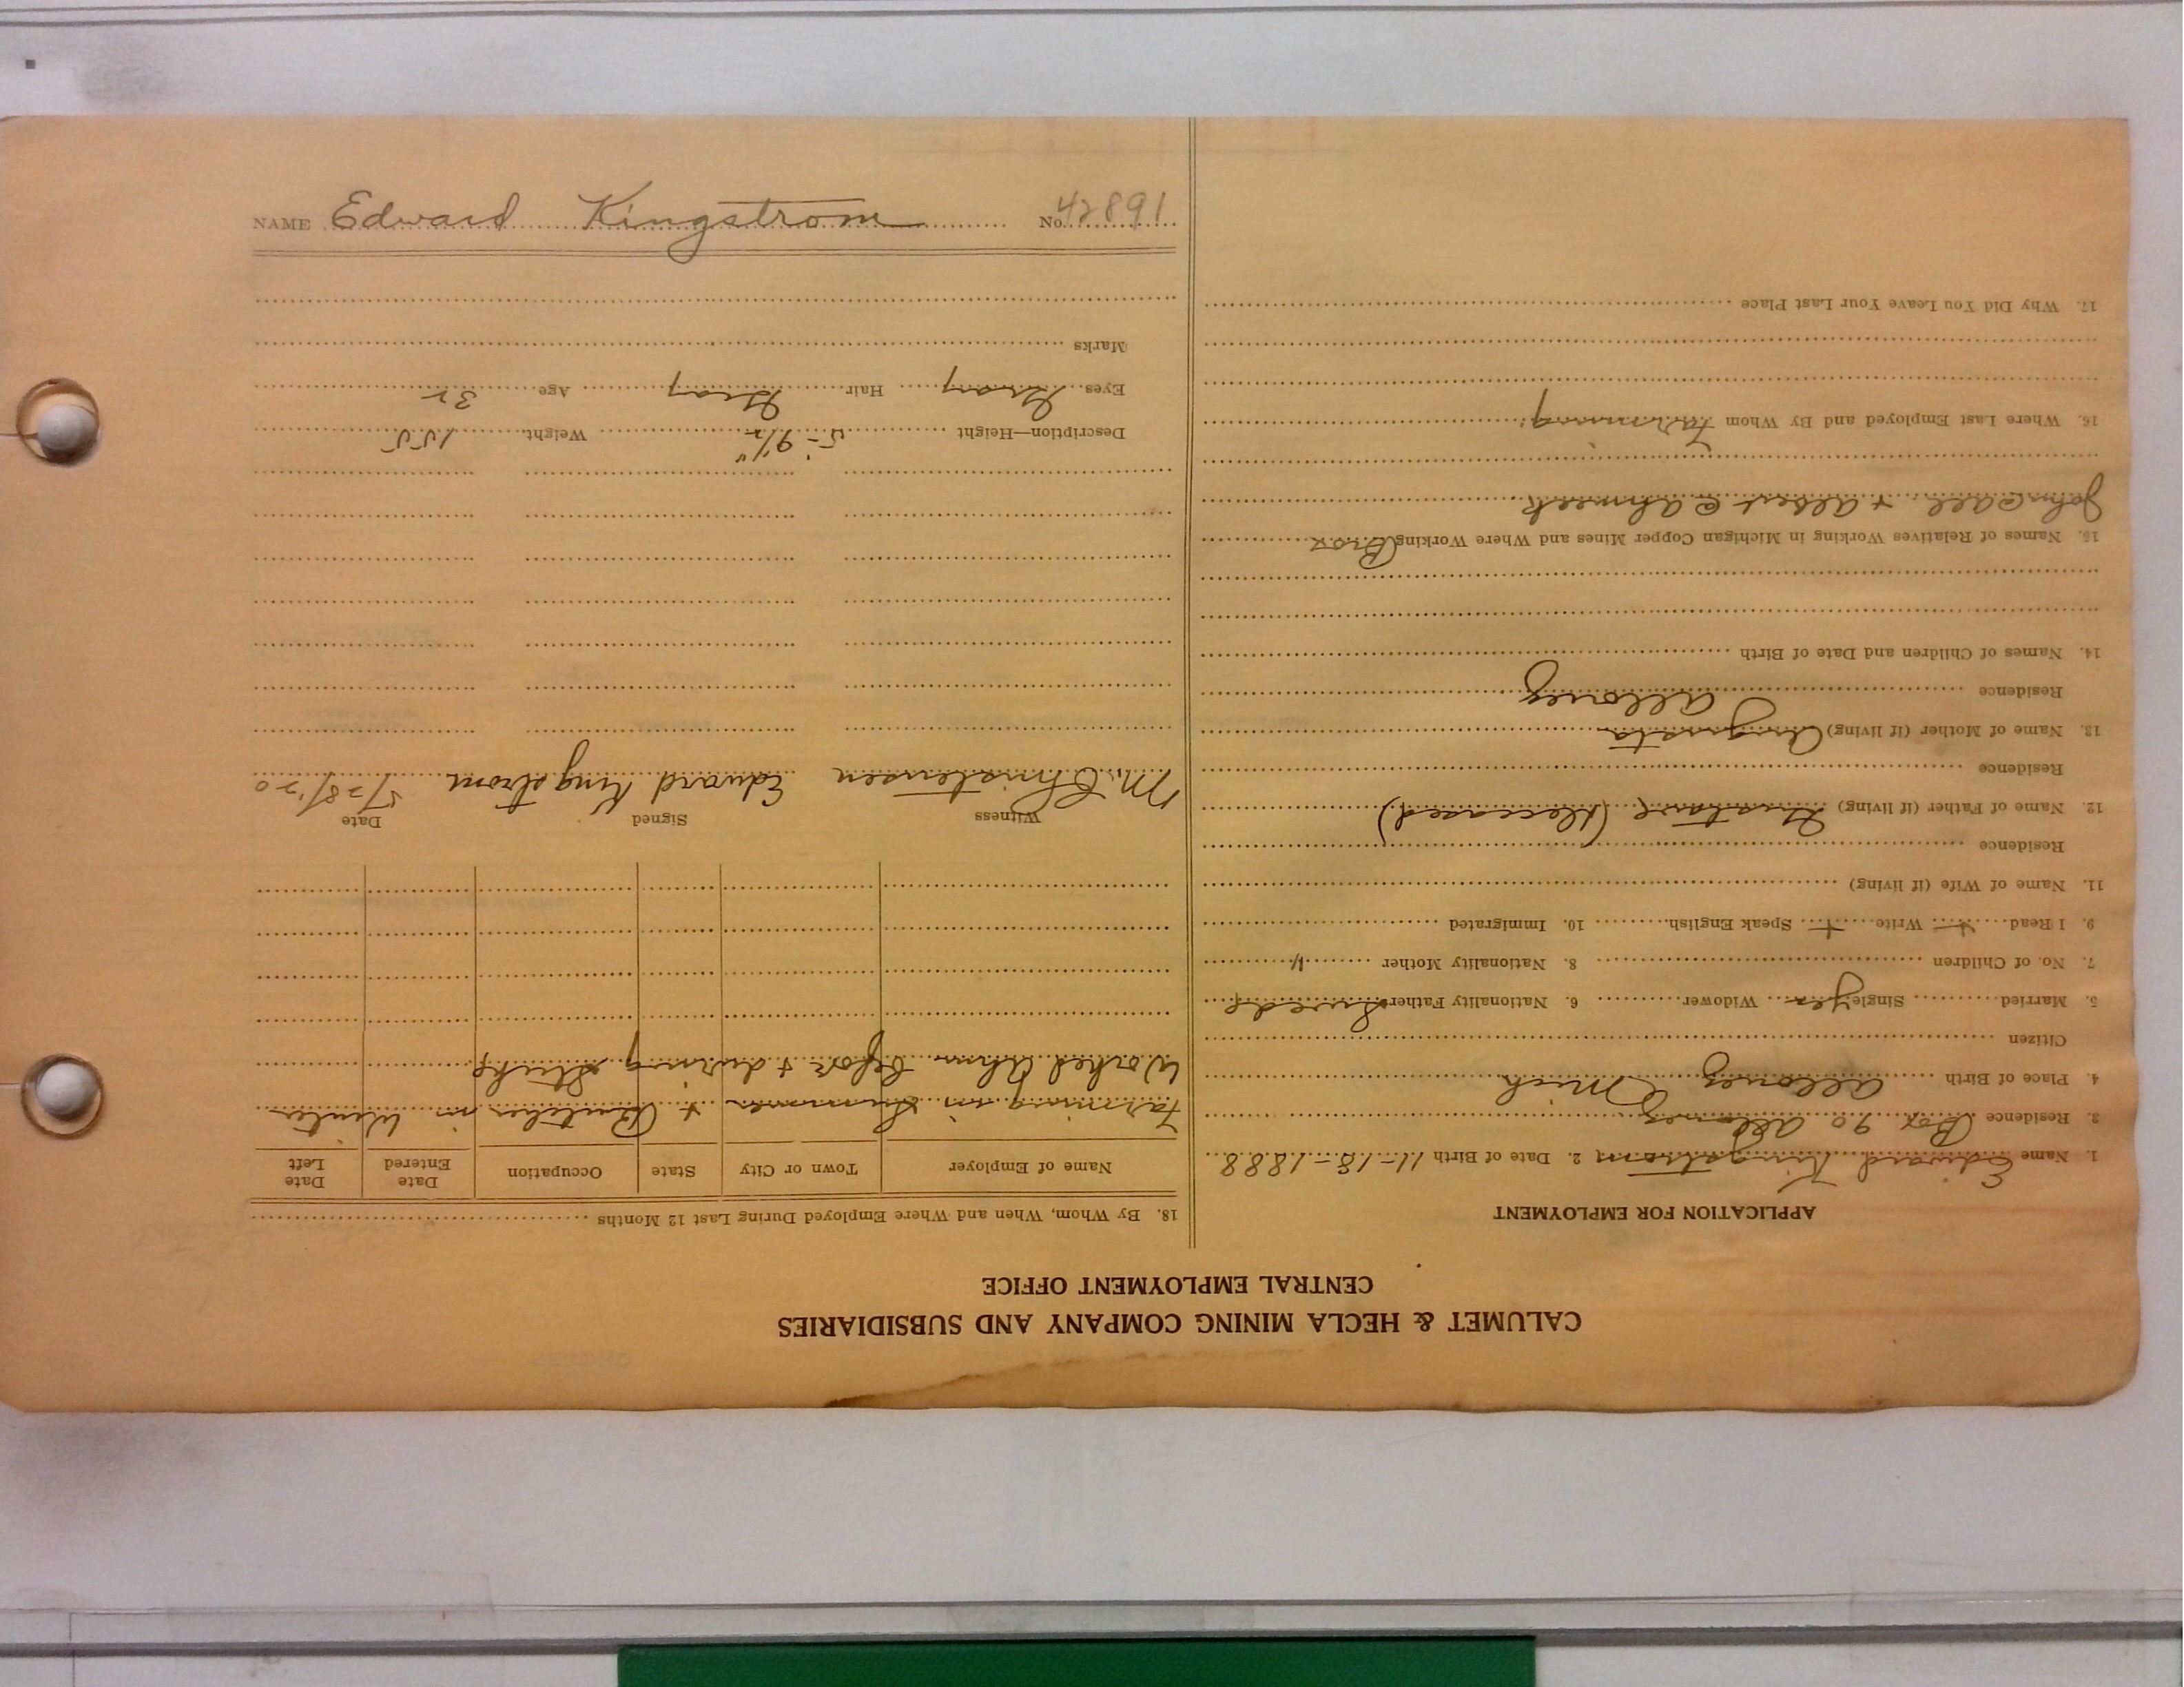 NAME Edward Kingstrom No. 42891
CALUMET & HECLA MINING COMPANY AND SUBSIDIARIES
CENTRAL EMPLOYMENT OFFICE
APPLICATION FOR EMPLOYMENT
1. Name Edward Kingstrom 2. Date of Birth 11-18-1888
3. Residence Box 90 Allouez
4. Place of Birth Allouez Mich
Citizen
5. Married Single yes Widower 6. Nationality Father Swede
7. No. of Children 8. Nationality Mother "
9. I Read + Write + Speak English 10. Immigrated
11. Name of Wife (if living)
Residence
12. Name of Father (if living) Gustave (deceased)
Residence
13. Name of Mother (if living) Augusta
Residence Allouez
14. Names of Children and Date of Birth
15. Names of Relatives Working in Michigan Copper Mines and Where Working Bros
John @ All. + Albert @ Ahmeek
16. Where Last Employed and By Whom Farming
17. Why Did You Leave Your Last Place
18. By Whom, When and Where Employed During Last 12 Months
Name of Employer Town or City State Occupation Date Entered Date Left
Farming in Summer + Butcher in Winter
Worked Ahm before + during Strike
Witness Signed Date
M. Christensen Edward Kingstrom 5/28/20
Description—Height 5'-9 1/2" Weight 155
Eyes Gray Hair Gray Age 32
Marks